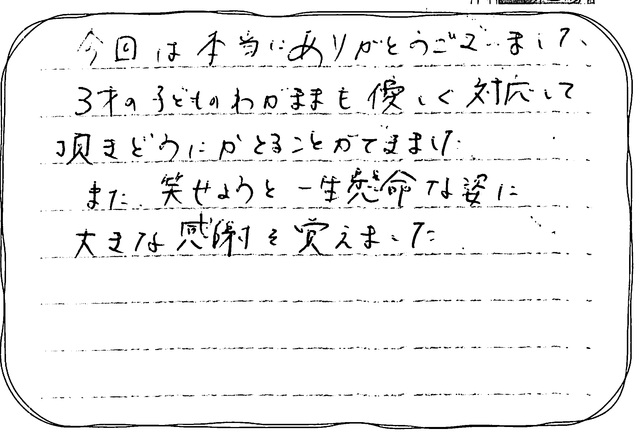 今回は本当にありがとうございました、
3才の子どものわがままも優しく対応して
頂きどうにかとることができました
また、笑せようと一生懸命な姿に
大きな感謝を覚えました